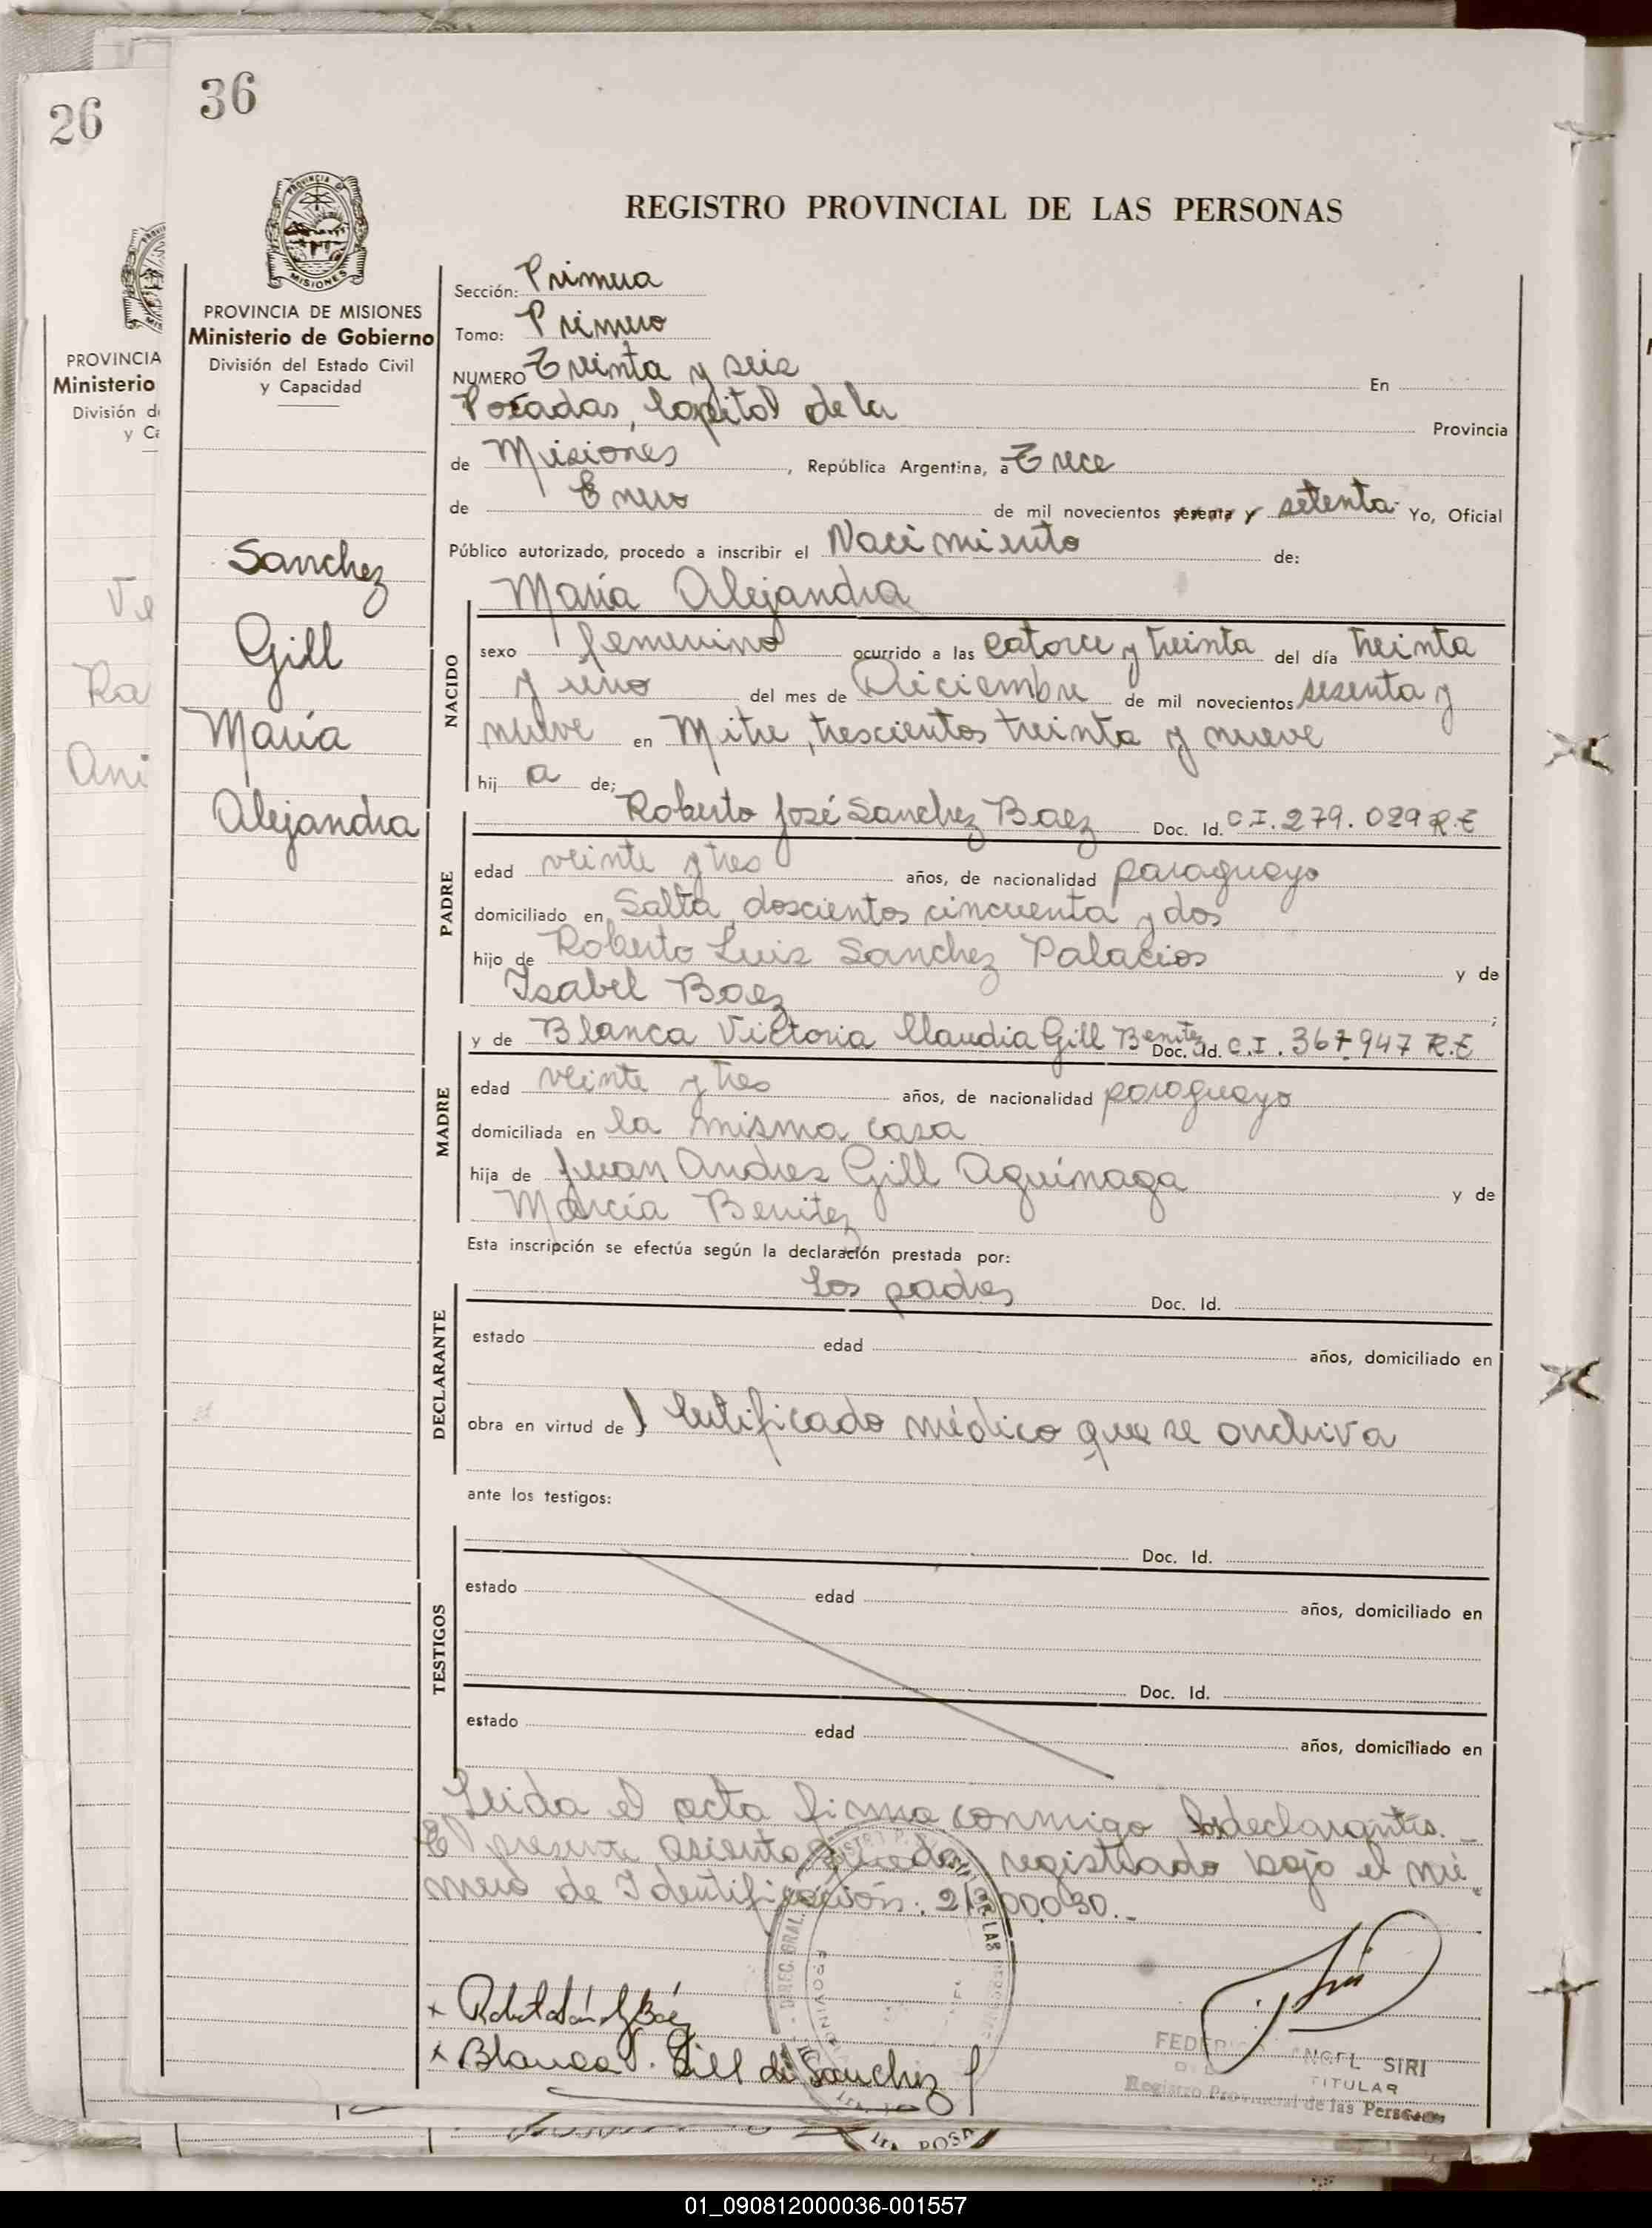 26
36
PROVINCIA
Ministerio
División d
y Ca
Ve
Ra
Ani
PROVINCIA DE MISIONES
Ministerio de Gobierno
División del Estado Civil
y Capacidad
Sanchez
Gill
María
Alejandra
REGISTRO PROVINCIAL DE LAS PERSONAS
Sección: Primera
Tomo: Primero
NUMERO Treinta y seis En
Posadas, Capital de la Provincia
de Misiones, República Argentina, a Trece
de Enero de mil novecientos sesenta y setenta Yo, Oficial
Público autorizado, procedo a inscribir el Nacimiento de:
María Alejandra
NACIDO
sexo femenino ocurrido a las catorce y treinta del día treinta
y uno del mes de Diciembre de mil novecientos sesenta y
nueve en Mitre, trescientos treinta y nueve
hij a de;
PADRE
Roberto José Sanchez Baez Doc. Id. C.I. 279.029 R.E
edad veinte y tres años, de nacionalidad paraguayo
domiciliado en Salta, doscientos cincuenta y dos
hijo de Roberto Luis Sanchez Palacios y de
Isabel Baez ;
MADRE
y de Blanca Victoria Claudia Gill Benitez Doc. Id. C.I. 367.947 R.E
edad veinte y tres años, de nacionalidad paraguayo
domiciliada en la misma casa
hija de Juan Andres Gill Aguinaga y de
Marcía Benitez
Esta inscripción se efectúa según la declaración prestada por:
DECLARANTE
los padres Doc. Id.
estado edad años, domiciliado en
obra en virtud de Certificado médico que se archiva
ante los testigos:
TESTIGOS
Doc. Id.
estado edad años, domiciliado en
Doc. Id.
estado edad años, domiciliado en
Leida el acta firma conmigo los declarantes.-
El presente asiento queda registrado bajo el nú-
mero de Identificación: 21.000.030.-
x Baéz
x Blanca V. Gill de Sanchez
FEDERICO ANGEL SIRI
TITULAR
Registro Provincial de las Personas
01_090812000036-001557